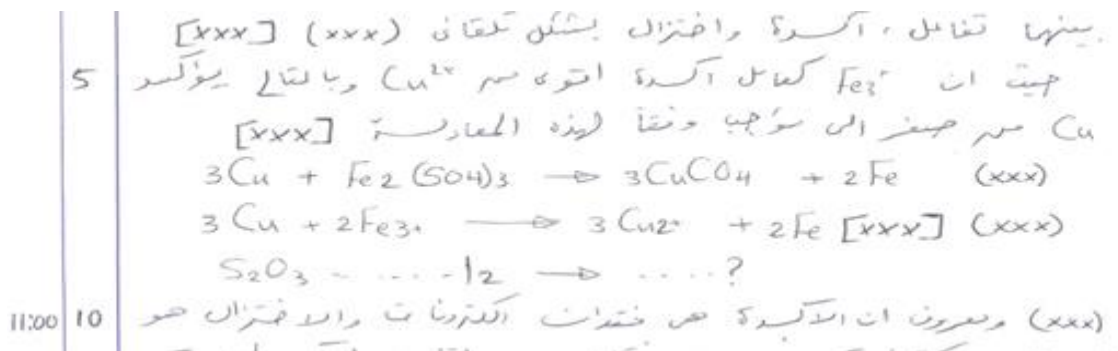 بينهما تفاعل، أكسدة واختزال بشكل تلقائي (xxx) [xxx]
5 حيث ان Fe3+ كعامل أكسدة اقوى من Cu2+ وبالتالي يؤكسد
Cu من صفر الى موجب وفقاً لهذه المعادلة [xxx]
3Cu + Fe2(SO4)3 → 3CuCO4 + 2Fe (xxx)
3Cu + 2Fe3+ → 3Cu2+ + 2Fe [xxx] (xxx)
S2O3 ...... I2 → ....?
11:00 10 (xxx) ومعروف ان الاكسدة هي فقدان الكترونات والاختزال هو